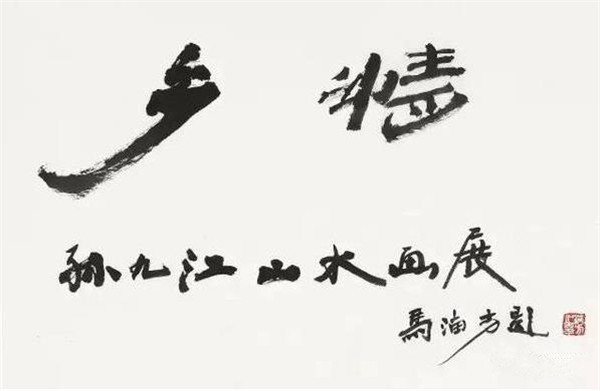 乡情
孙九江山水画展
馬海方題